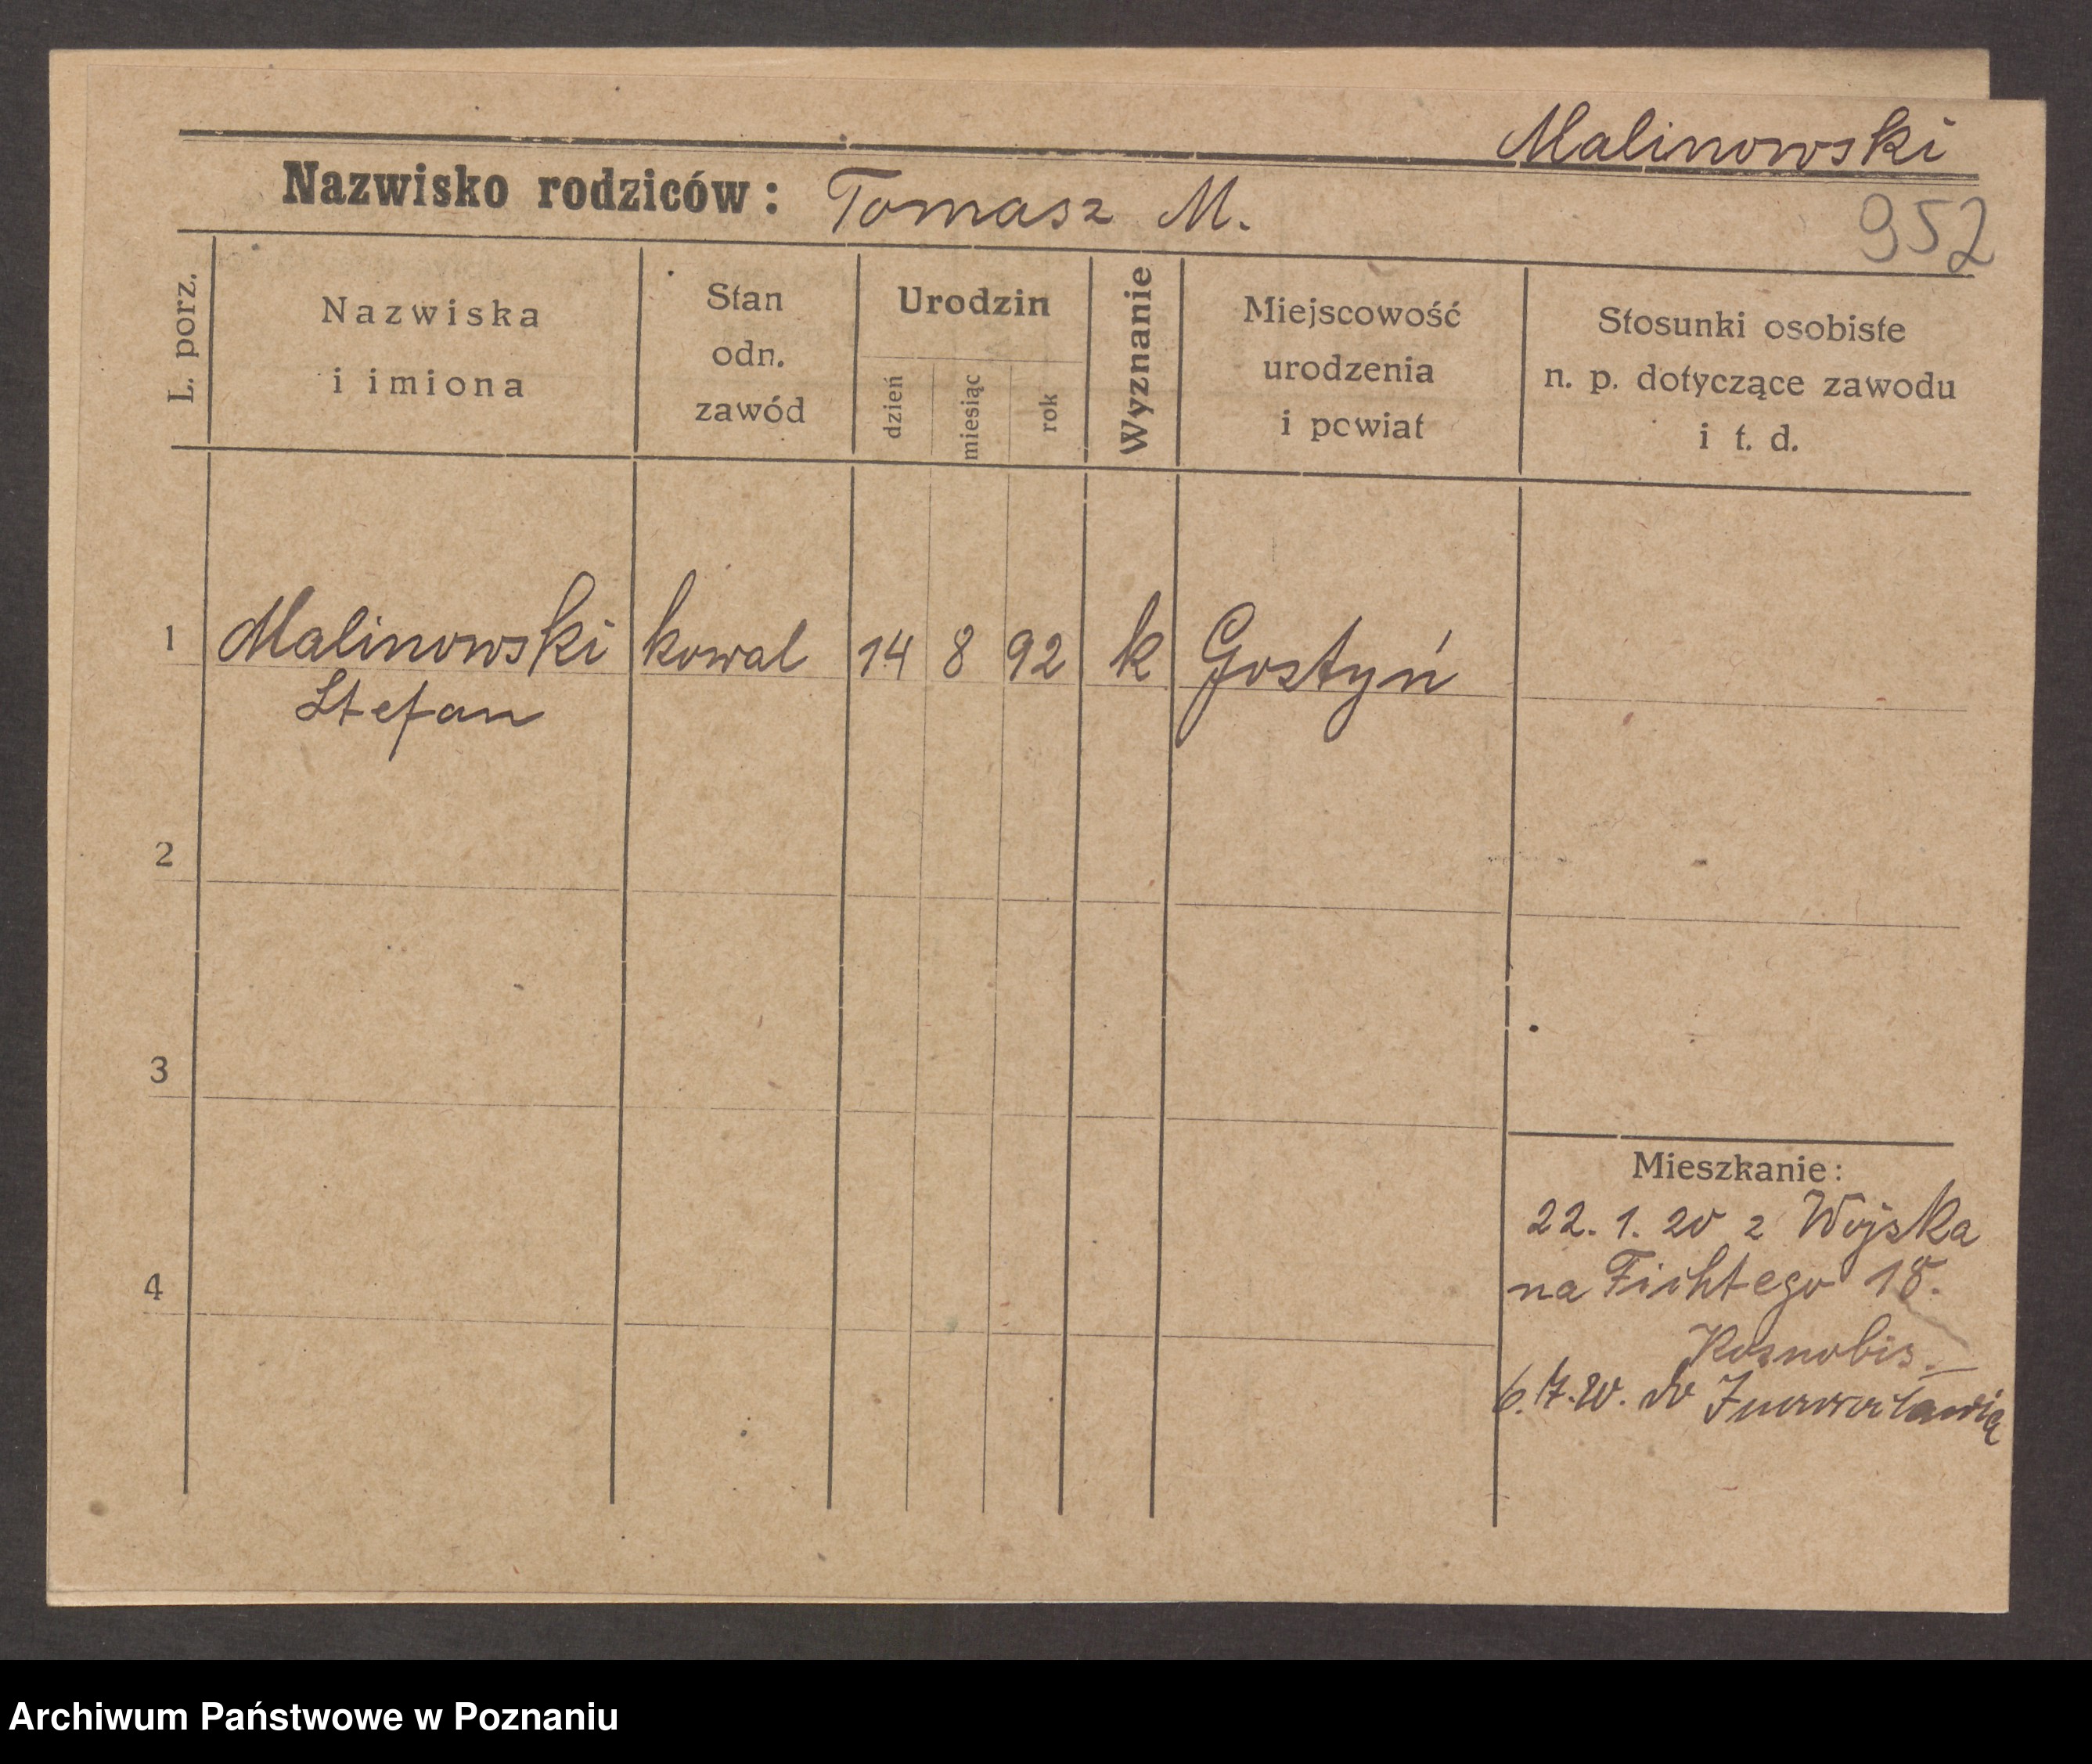 Malinowski
Nazwisko rodziców: Tomasz M.
952
L. porz.
Nazwiska
i imiona
Stan
odn.
zawód
Urodzin
dzień
miesiąc
rok
Wyznanie
Miejscowość
urodzenia
i powiat
Stosunki osobiste
n. p. dotyczące zawodu
i t. d.
1 Malinowski kowal 14 8 92 k Gostyń
Stefan
2
3
4
Mieszkanie:
22. 1. 20 z Wojska
na Fichtego 18.
6. 7. 20. do Inowrocławia
Archiwum Państwowe w Poznaniu